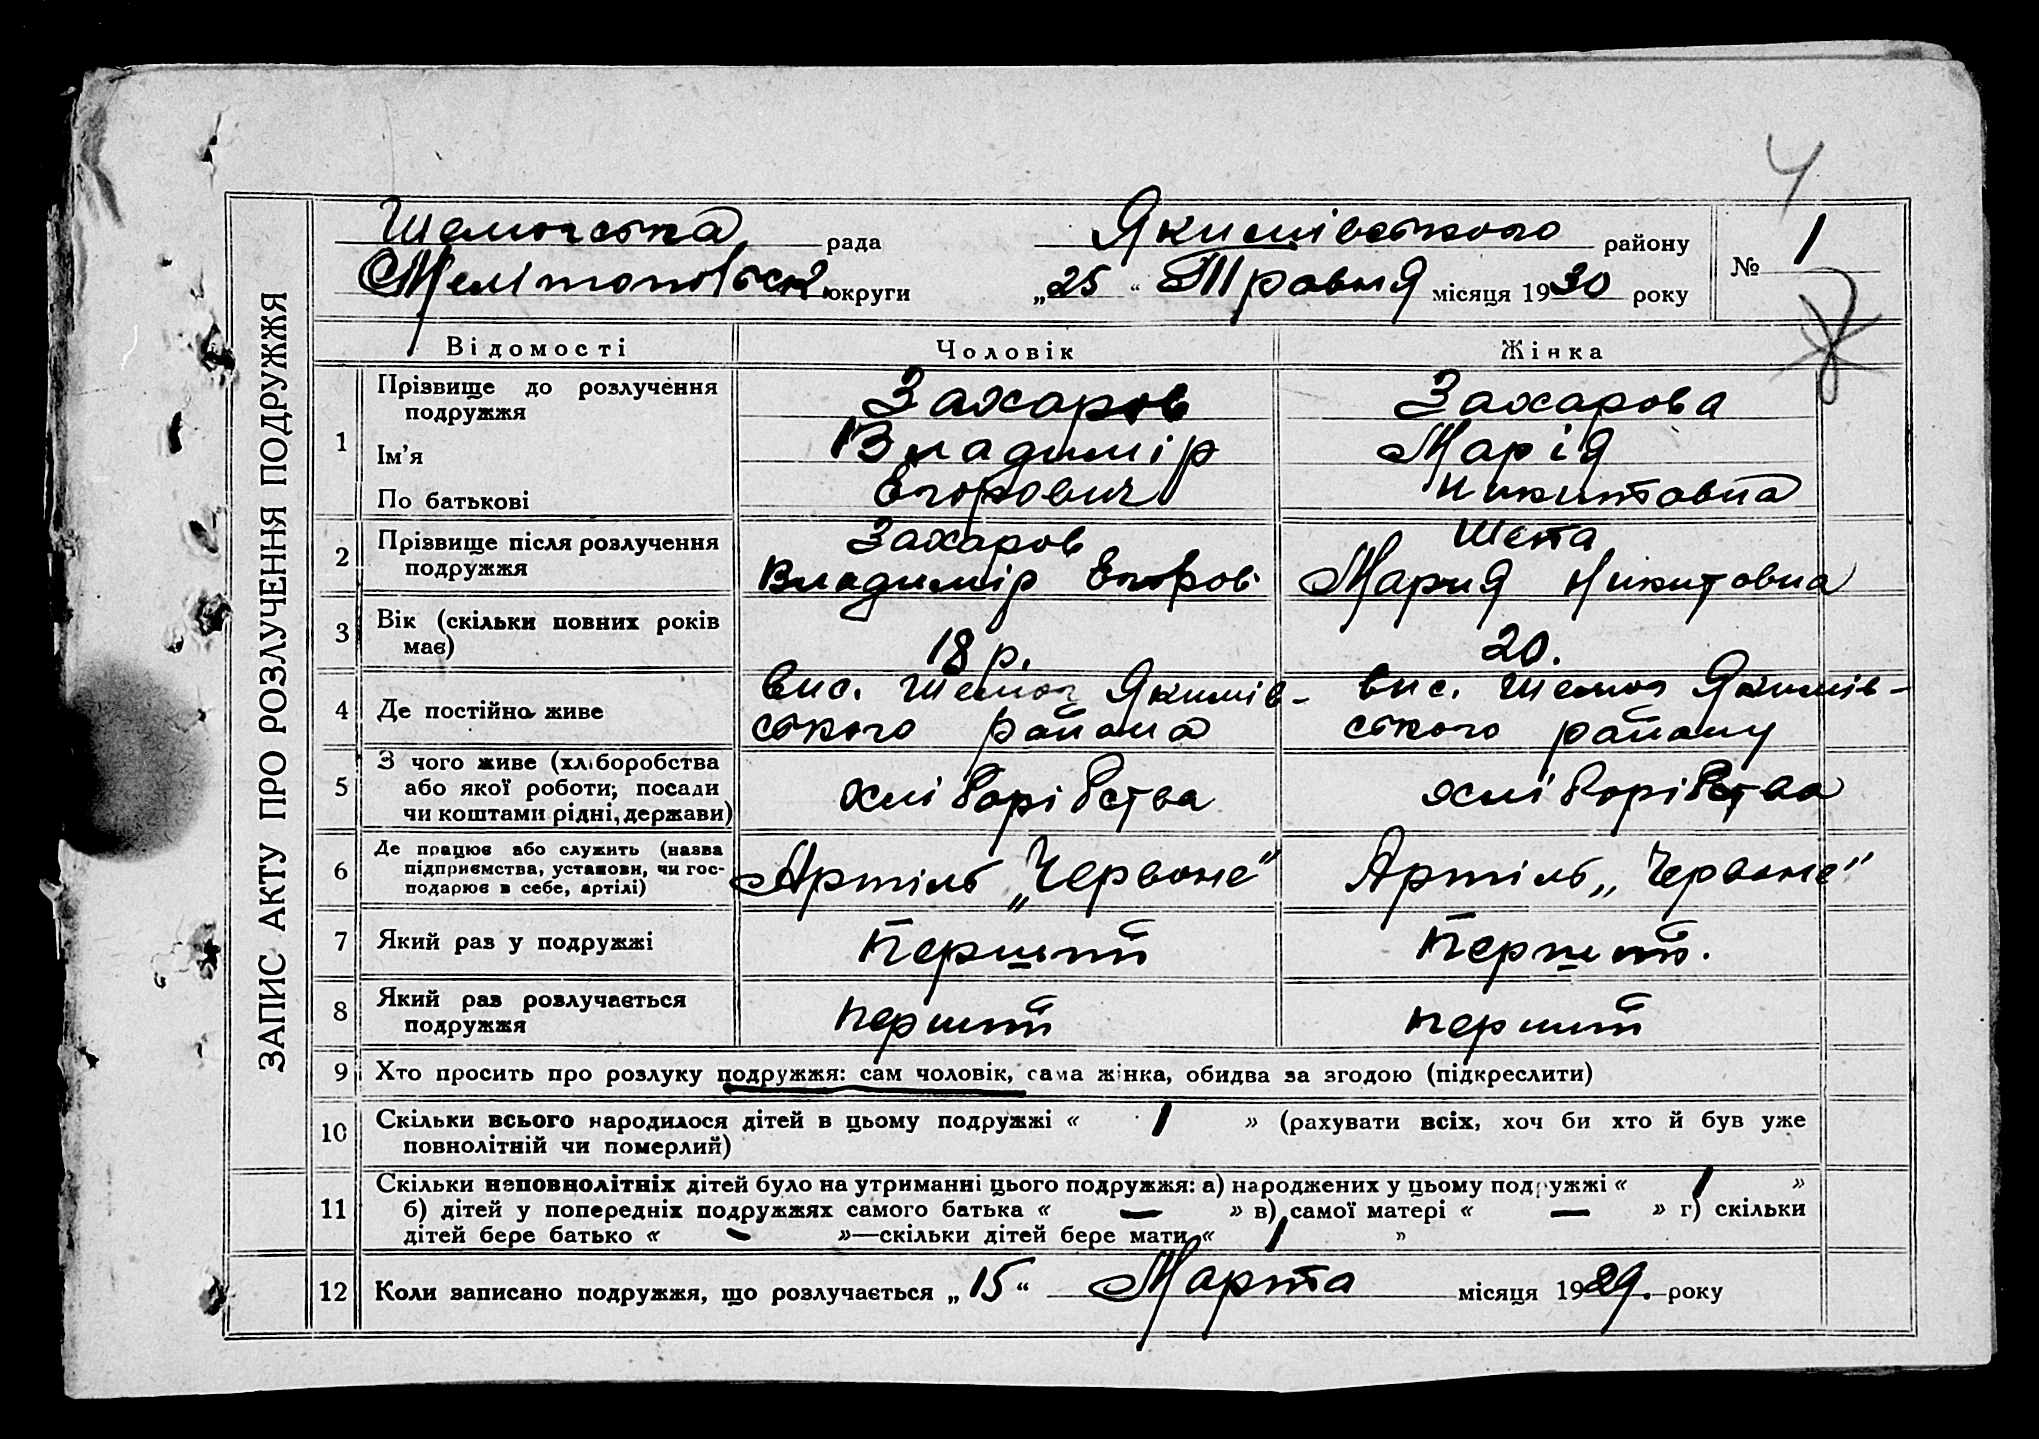 4
ЗАПИС АКТУ ПРО РОЗЛУЧЕННЯ ПОДРУЖЖЯ
рада Якимівського району
Мелітопільск. округи „25“ Травня місяця 1930 року
№ 1
Відомості Чоловік Жінка
1 Прізвище до розлучення подружжя Захаров Захарова
Ім’я Владимір Марія
По батькові Егорович Никитовна
2 Прізвище після розлучення Захаров Шепа
подружжя Владимір Егоров. Мария Никитовна
3 Вік (скільки повних років
має) 18 р. 20.
4 Де постійно живе вис. Якимів- вис. Якимів-
ського района ського району
5 З чого живе (хліборобства
або якої роботи; посади хліборібства хліборібства
чи коштами рідні, держави)
6 Де працює або служить (назва
підприємства, установи, чи гос- Артіль „Червоне“ Артіль „Червоне“
подарює в себе, артілі)
7 Який раз у подружжі Перший Перший.
8 Який раз розлучається
подружжя перший перший
9 Хто просить про розлуку подружжя: сам чоловік, сама жінка, обидва за згодою (підкреслити)
10 Скільки всього народилося дітей в цьому подружжі « 1 » (рахувати всіх, хоч би хто й був уже
повнолітній чи померлий)
11 Скільки неповнолітніх дітей було на утриманні цього подружжя: а) народжених у цьому подружжі « 1 »
б) дітей у попередніх подружжях самого батька « — » в) самої матері « — » г) скільки
дітей бере батько « - »—скільки дітей бере мати « 1 »
12 Коли записано подружжя, що розлучається „15“ Марта місяця 1929. року